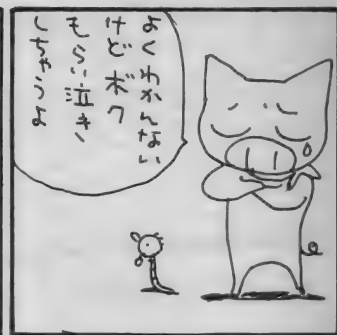 よくわかんない
けどボク
もらい泣き、
しちゃうよ